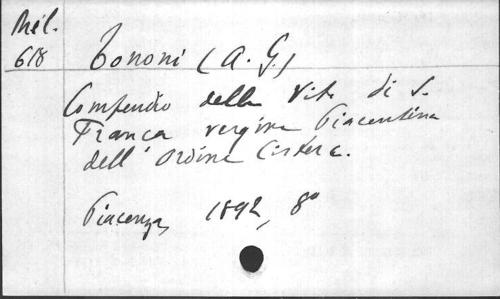 Mél.
618
Tononi (A. G.)
Compendio della Vita di S.
Franca vergine Piacentina
dell'Ordine Cisterc.
Piacenza, 1892, 8°